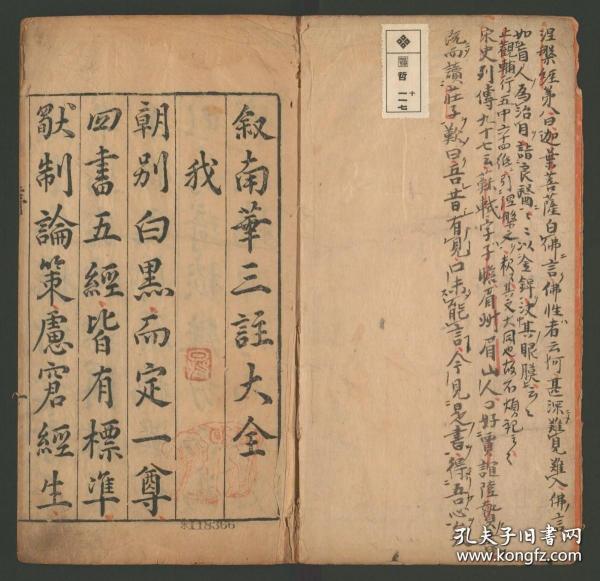 涅槃經第八曰迦葉菩薩白佛言佛性者云何甚深難見難入佛言
如盲人為治目詣良醫〻〻以金錍決其眼膜云〻
止觀輔行五中六十四紙引涅槃文教其文大同也故不煩記之
宋史列傳九十七云蘇軾字子瞻眉州眉山人口好賈誼陸贄書
既而讀莊子歎曰吾昔有見口未能言今見是書得吾心
哲
一一七
十
叙南華三註大全
我
朝别白黒而定一尊
四書五經皆有標準
猷制論策慮窘經生
*118366
孔夫子旧书网
www.kongfz.com